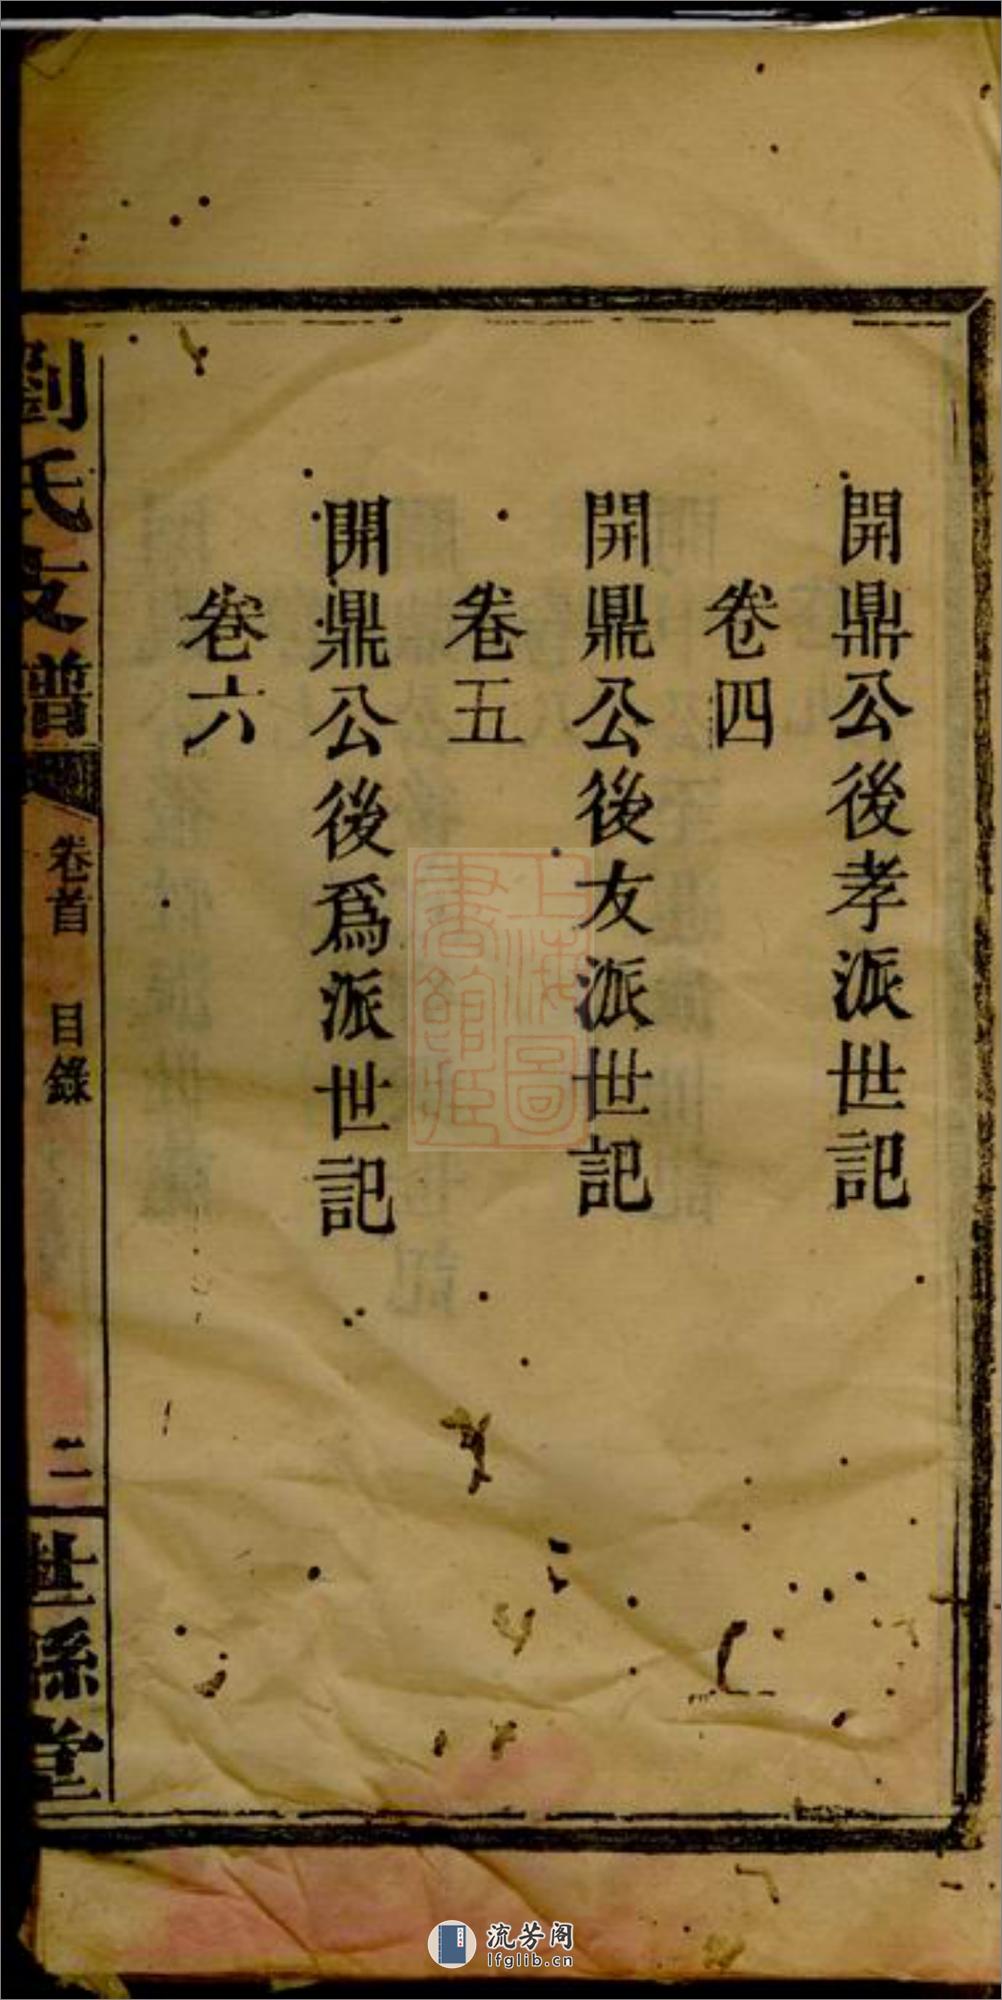 開鼎公後孝派世記
卷四
開鼎公後友派世記
卷五
開鼎公後爲派世記
卷六
劉氏支譜
卷首 目錄
二
上海圖
書館藏
流芳阁
lfglib.cn